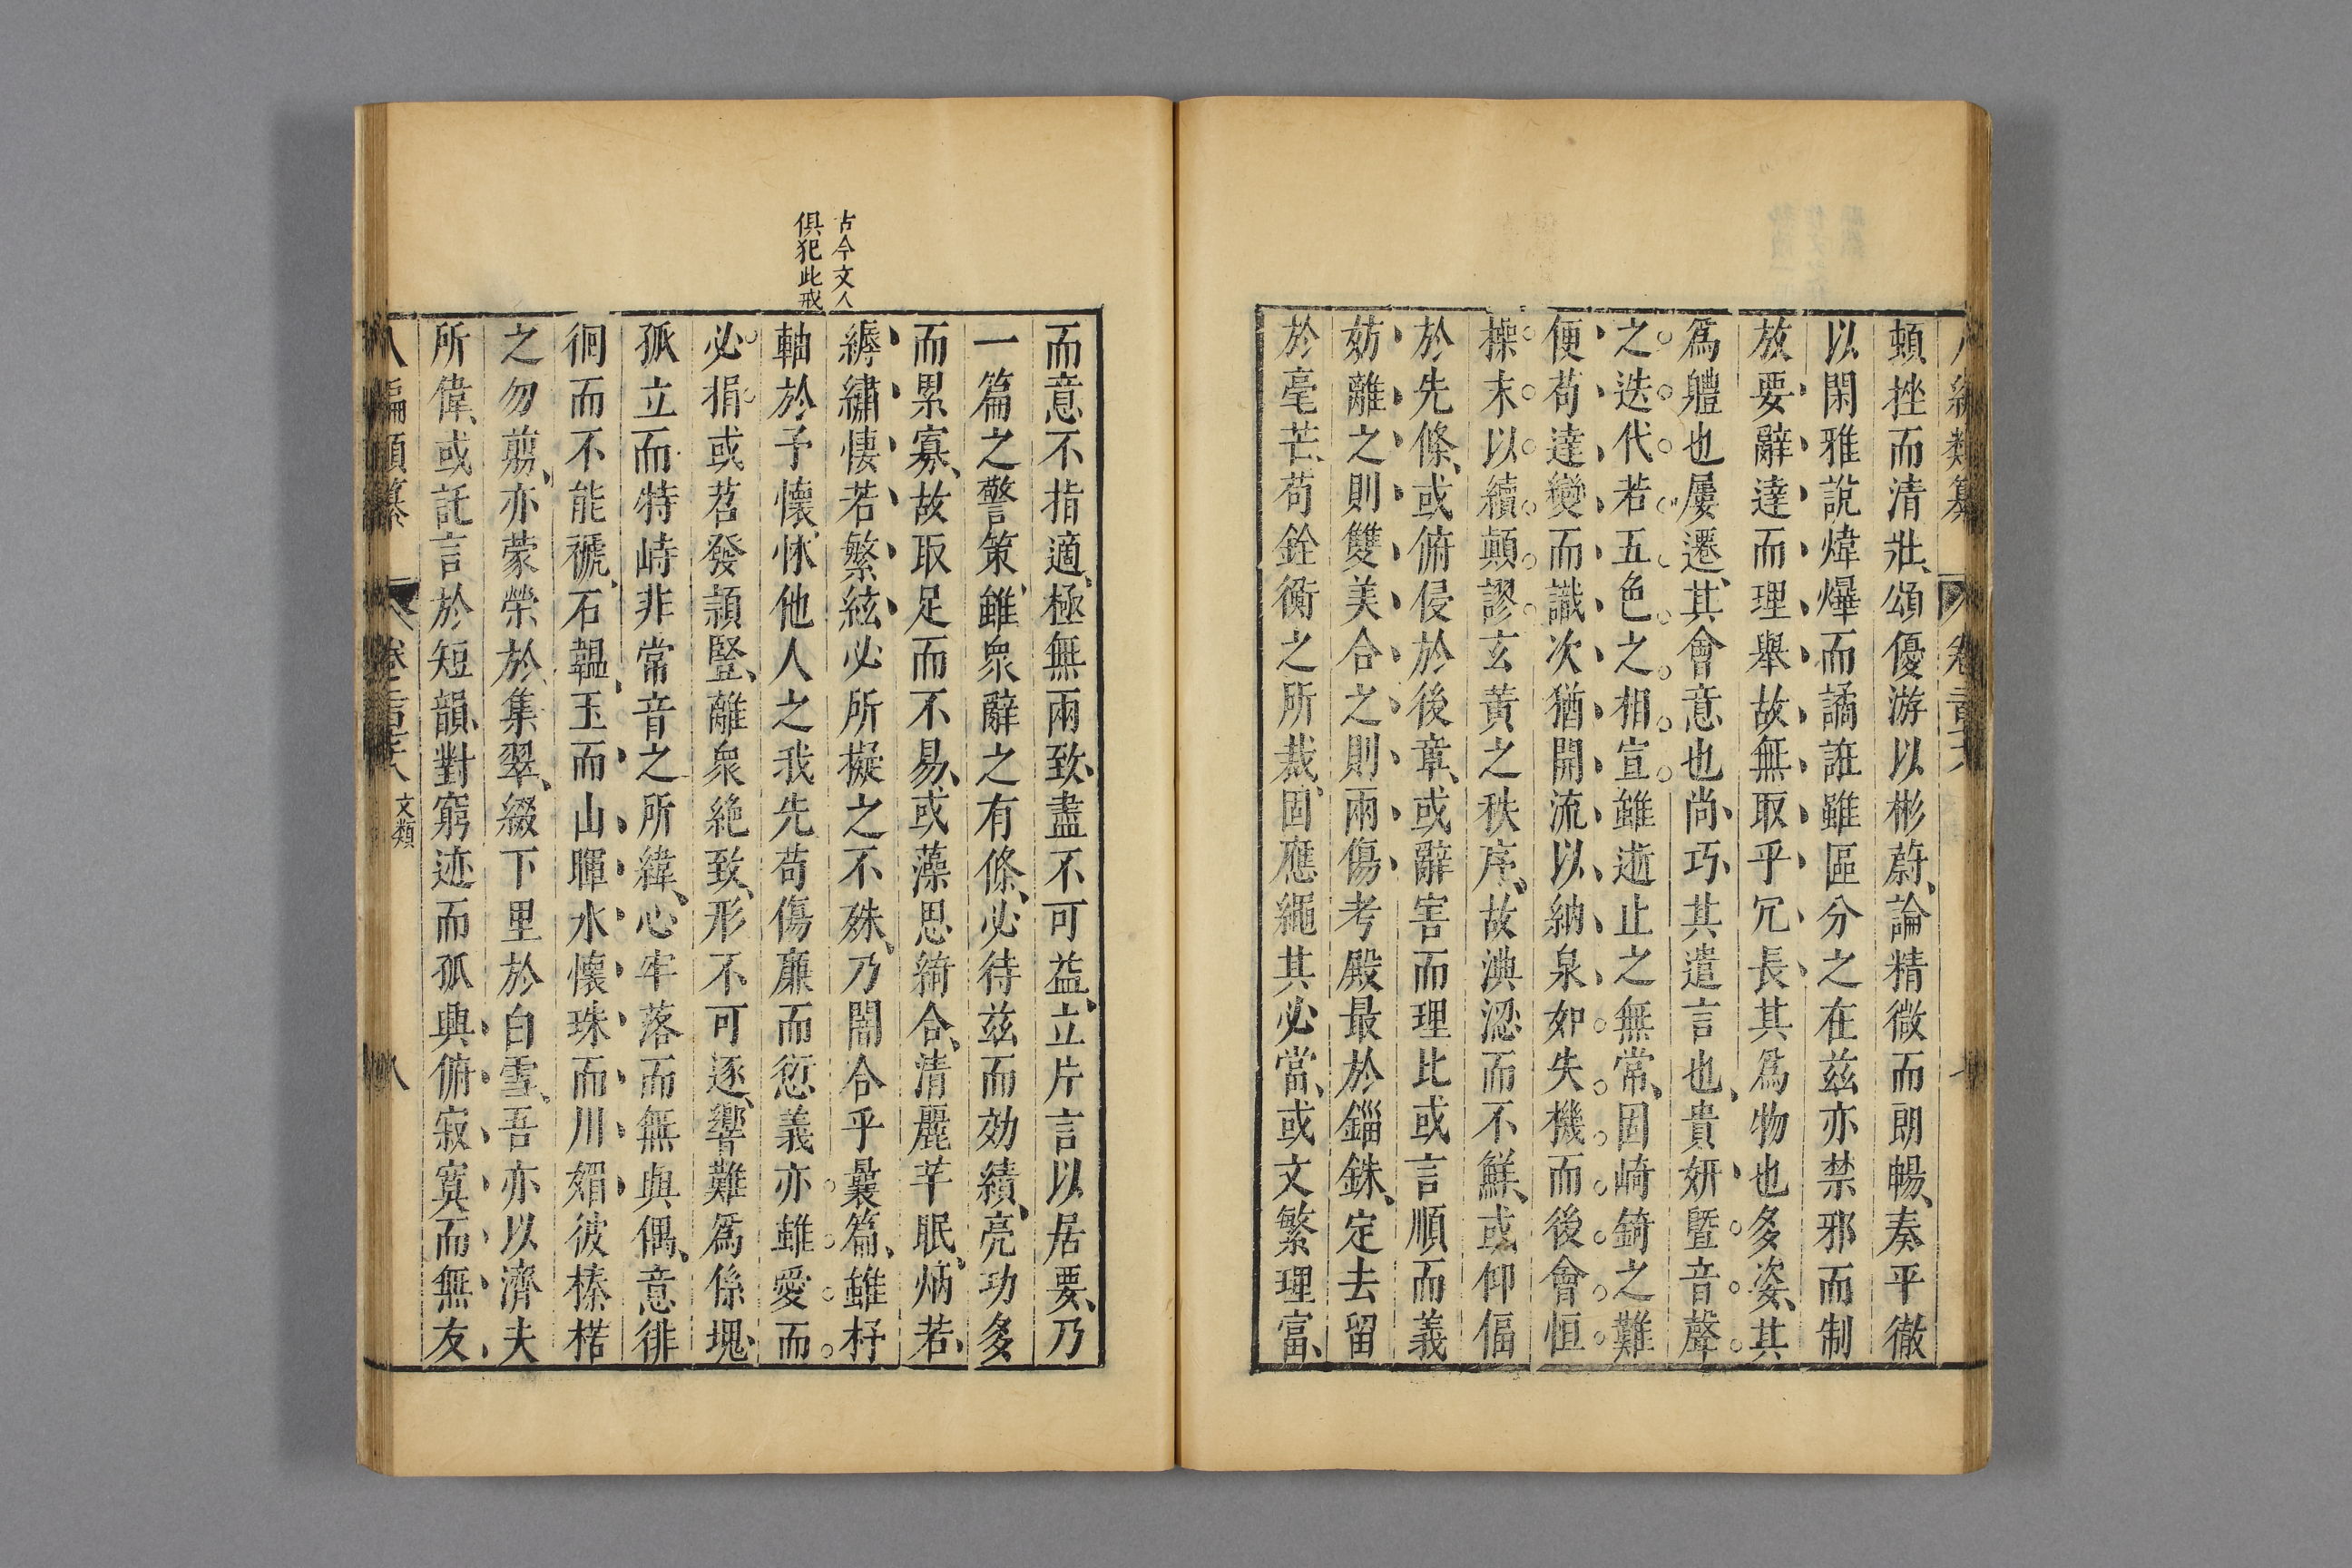 八編類纂 卷二百三六 七
頓挫而清壯、頌優游以彬蔚、論精微而朗暢、奏平徹
以閑雅說煒燁而譎誑雖區分之在茲亦禁邪而制
放要辭達而理舉故無取乎冗長其爲物也多姿、其
爲軆也屢遷、其會意也尚巧、其遣言也、貴妍暨音聲
之迭代若五色之相宣雖逝止之無常、固崎錡之難
便苟達變而識次猶開流以納泉如失機而後會恒
操末以續顛謬玄黃之秩序、故淟涊而不鮮、或仰偪
於先條、或俯侵於後章、或辭害而理比或言順而義
妨離之則雙美合之則兩傷考殿最於錙銖、定去留
於毫芒、苟銓衡之所裁、固應繩其必當、或文繁理富、
而意不指適、極無兩致、盡不可益、立片言以居要、乃
一篇之警策、雖衆辭之有條、必待茲而効績、亮功多
而累寡、故取足而不易、或藻思綺合、清麗芊眠、炳若、
古今文人
俱犯此戒
縟繡悽若繁絃必所擬之不殊、乃闇合乎曩篇、雖杼
軸於予懷、怵他人之我先苟傷廉而愆義亦雖愛而
必捐或苕發頴豎、離衆絶致、形不可逐、響難爲係塊、
孤立而特峙非常音之所緯、心牢落而無與偶、意徘
徊而不能褫、石韞玉而山暉水懷珠而川媚彼榛楛
之勿翦、亦蒙榮於集翠、綴下里於白雪、吾亦以濟夫
所偉、或託言於短韻、對窮迹而孤興俯寂寞而無友
八編類纂 卷二百三六 文類 八